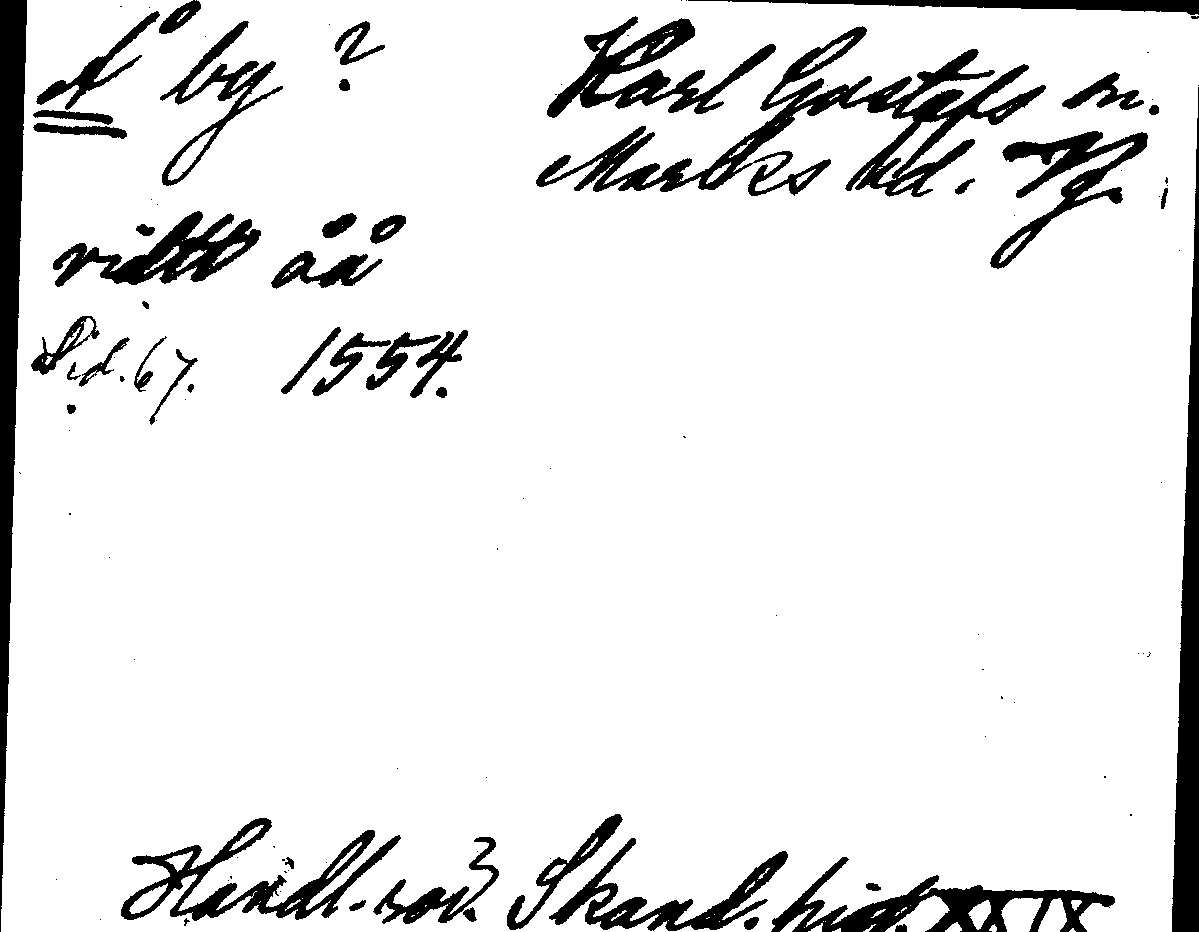 Å by ?
Karl Gustafs sn.
Marks hd. Vg.
vidtt åå
Sid. 67. 1554.
Handl. rör. Skand. hist. XXIX